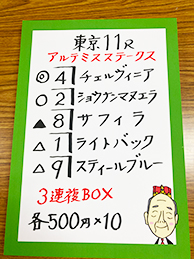 東京11R
アルテミスステークス
◎4チェルヴィニア
○2ショウナンマヌエラ
▲8サフィラ
△1ライトバック
△9スティールブルー
3連複BOX
各500円×10